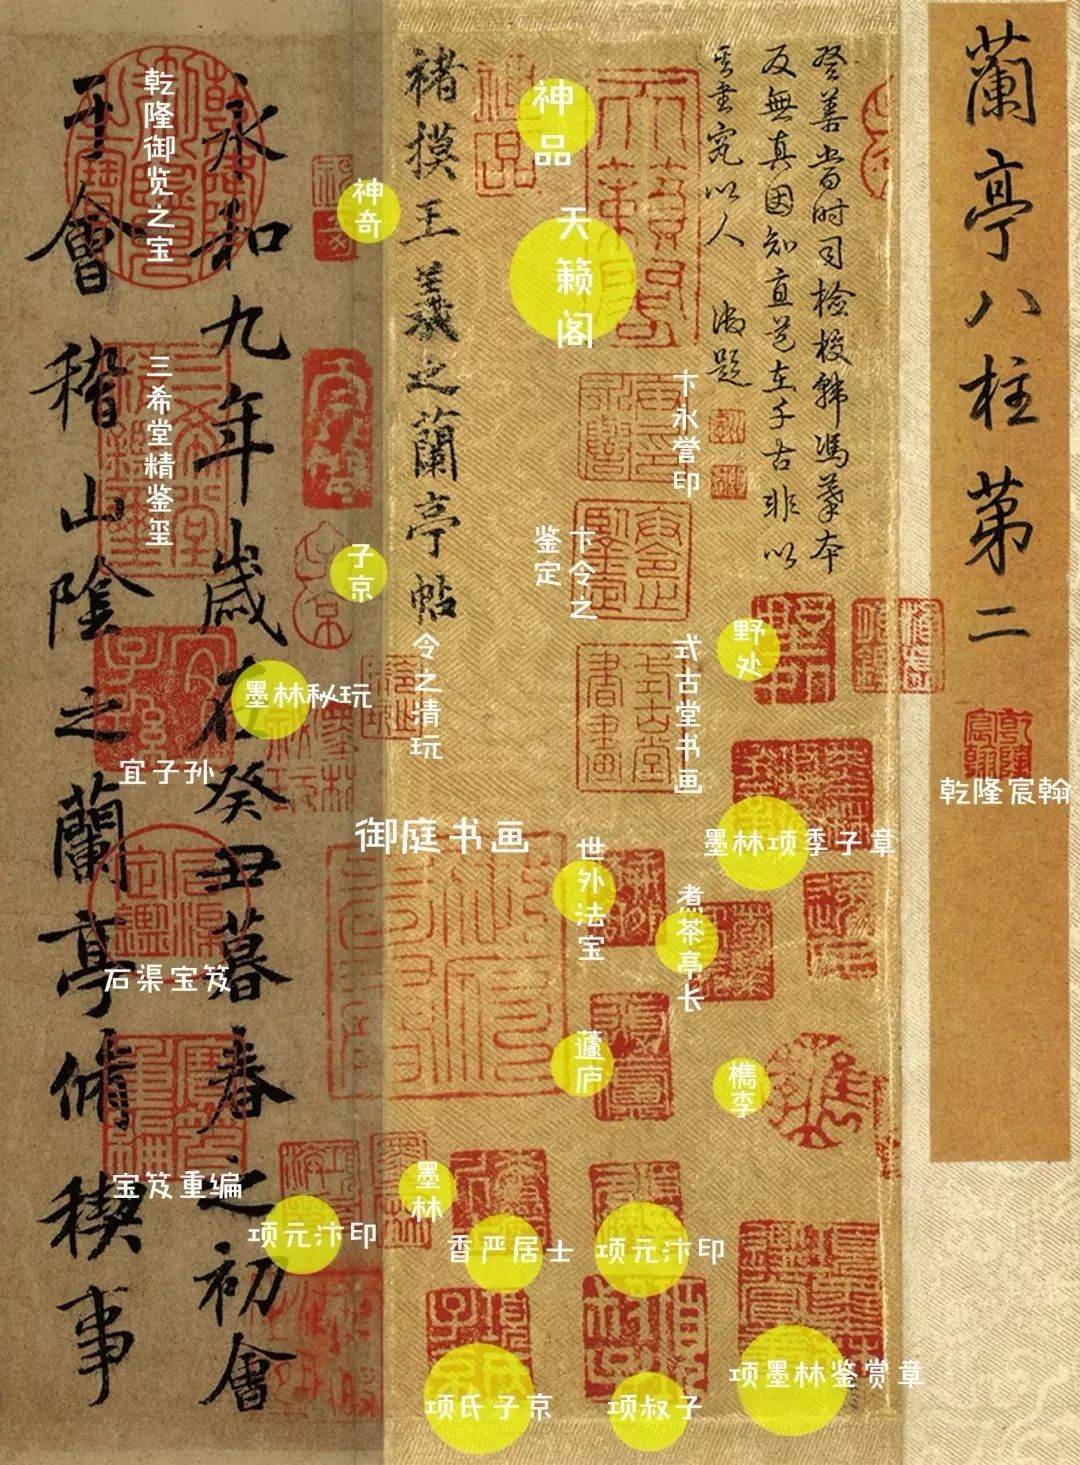 蘭亭八柱第二
乾隆宸翰
登善當時司檢校韓馮摹本
反無真因知直道在千古非以
其書究以人 御題
野处
墨林项季子章
煮茶亭长
槜李
项墨林鉴赏章
卞永誉印
卞令之
鉴定
式古堂书画
神品
天籁阁
世外法宝
蘧庐
项元汴印
项叔子
褚摸王羲之蘭亭帖
令之清玩
御庭书画
墨林
香严居士
项氏子京
神奇
子京
墨林秘玩
项元汴印
永和九年歲在癸丑暮春之初會
于會稽山陰之蘭亭脩禊事
乾隆御览之宝
三希堂精鉴玺
宜子孙
石渠宝笈
宝笈重编